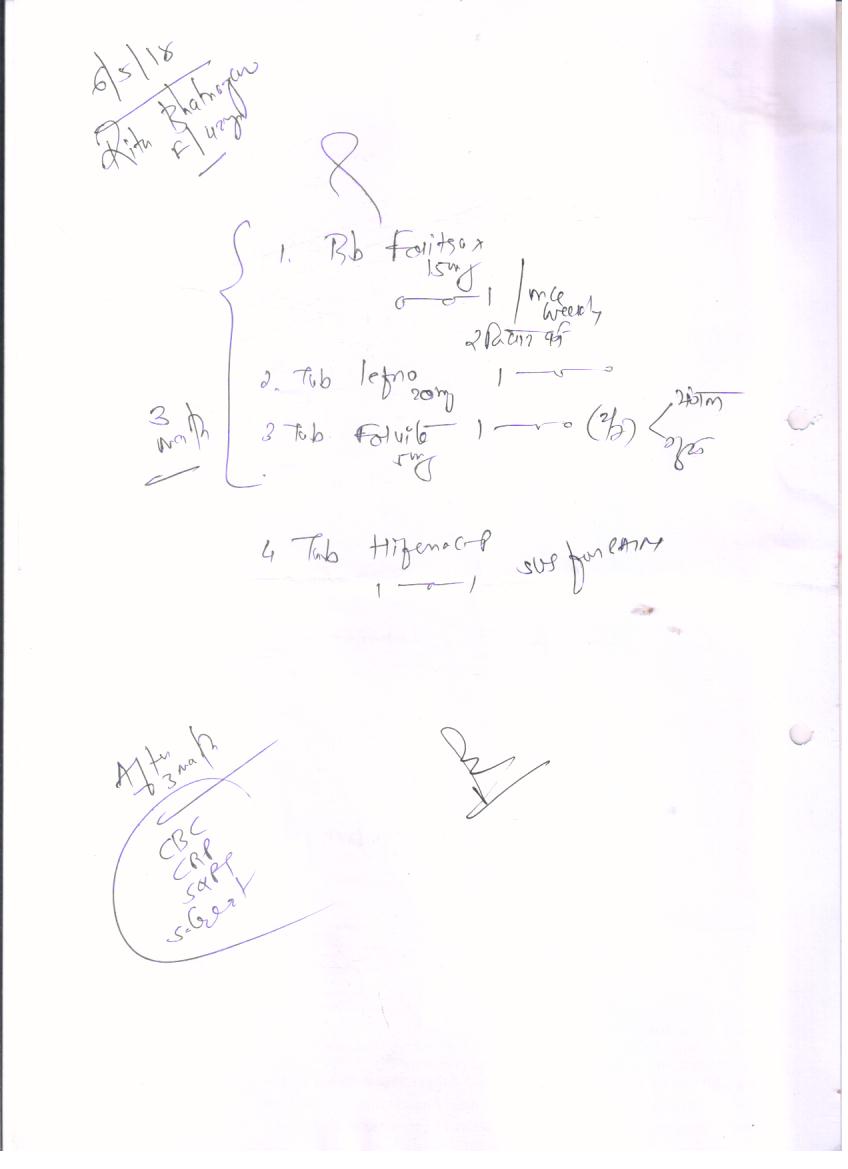 6/5/18
Ritu Bhatnagar
F/42yr
1. Tab Folitrax
15mg
0—0—1 / once weekly
रविवार को
2. Tab lefno 1—0—0
20mg
3 Tab Folvite 1—0—0 (2/7) < मंगल
5mg
शुक्र
3 month
4 Tab Hifenac-P SOS for PAIN
1—0—1
After 3 month
CBC
CRP
SGPT
S.Creat